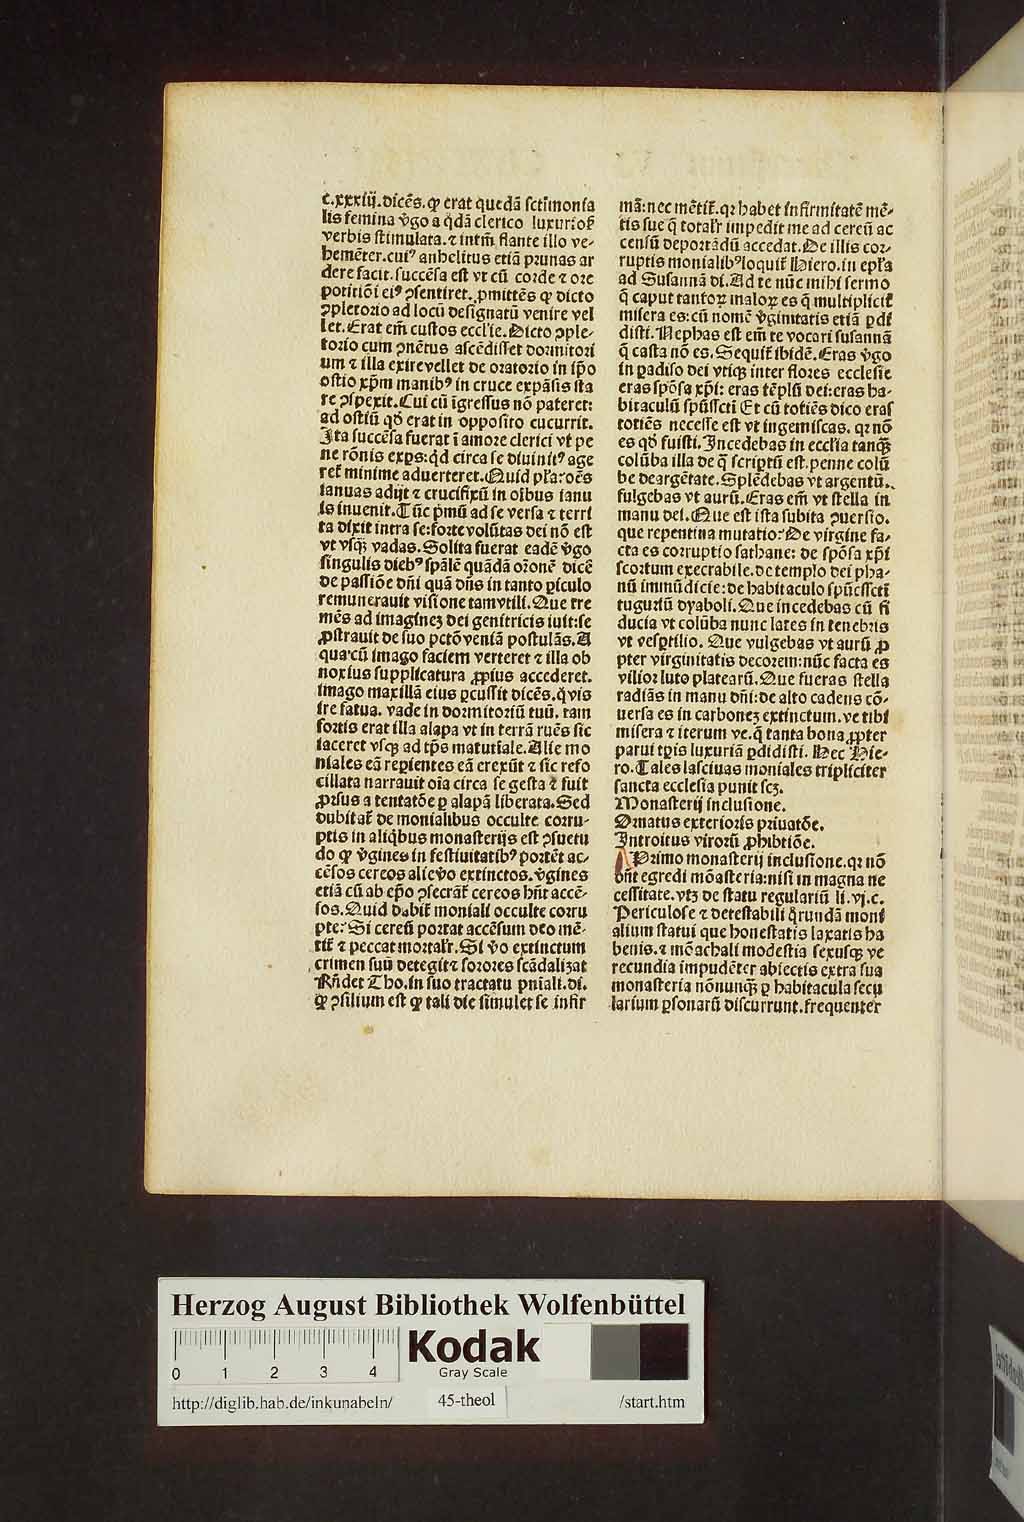 c.xxxiij.dicēs.ꝙ erat quedā sctīmonia
lis femina v̄go a q̄dā clerico luxurioſ
verbis stimulata.⁊ intm̄ flante illo ve-
hemēter.cuiꝰ anhelitus etiā prunas ar
dere facit.succēsa est vt cū corde ⁊ ore
potitiōi eiꝰ ꝯsentiret.ꝓmittēs ꝙ dicto
ꝯpletorio ad locū designatū venire vel
let.Erat em̄ custos eccl'ie.Dicto ꝯple-
torio cum ꝯuētus ascēdisset dormitori
um ⁊ illa exire vellet de oratorio in ip̄o
ostio xp̄m manibꝰ in cruce expāsis sta
re ꝯspexit.Cui cū īgressus nō pateret:
ad ostiū qd̄ erat in opposito cucurrit.
Ita succēsa fuerat ī amore clerici vt pe
ne rōnis exꝑs:qd̄ circa se diuinitꝰ age
ret̄ minime aduerteret.Quid pl'a:oēs
ianuas adijt ⁊ crucifixū in oībus ianu
is inuenit.Tūc pmū ad se versa ⁊ terri
ta dixit intra se:forte volūtas dei nō est
vt vsqꝫ vadas.Solita fuerat eadē v̄go
singulis diebꝰ spālē quādā orōnē dicē
de passiōe dn̄i quā dn̄s in tanto ꝑiculo
remunerauit visione tam vtili.Que tre
mēs ad imaginez dei genitricis iuit:se
ꝓstrauit de suo pctō veniā postulās.A
qua cū imago faciem verteret ⁊ illa ob
noxius supplicatura ꝓpius accederet.
imago maxillā eius ꝑcussit dicēs.q̊ vis
ire fatua. vade in dormitoriū tuū. tam
fortis erat illa alapa vt in terrā ruēs sic
iaceret vsqꝫ ad tp̄s matutīale.Alie mo
niales eā repientes eā erexūt ⁊ sic refo
cillata narrauit oīa circa se gesta ⁊ fuit
ꝓrsus a tentatōe ꝑ alapā liberata.Sed
dubitat̄ de monialibus occulte corru-
ptis in aliq̄bus monasterijs est ꝯsuetu
do ꝙ v̄gines in festiuitatibꝰ portēt ac-
cēsos cereos alie v̄o extinctos.v̄gines
etiā cū ab ep̄o ꝯsecrāt̄ cereos hn̄t accē-
sos.Quid dabit̄ moniali occulte corru
pte:Si cereū portat accēsum deo mē-
tit̄ ⁊ peccat mortal'r.Si v̄o extinctum
crimen suū detegit ⁊ sorores scādalizat
Rn̄det Tho.in suo tractatu pn̄iali.di.
ꝙ ꝯsilium est ꝙ tali die simulet se infir
mā:nec mētit̄.qr habet infirmitatē mē-
tis sue q̄ total'r impedit me ad cereū ac
censū deportādū accedat.De illis cor-
ruptis monialibꝰ loquit̄ Hiero.in epl'a
ad Susannā di.Ad te nūc mihi sermo
q̄ caput tantoꝝ maloꝝ es q̄ multiplicit̄
misera es:cū nomē v̄ginitatis etiā ꝑdi
disti.Nephas est em̄ te vocari susannā
q̄ casta nō es.Sequit̄ ibidē.Eras v̄go
in ꝑadiso dei vtiqꝫ inter flores ecclesie
eras spōsa xp̄i: eras tēplū dei:eras ha-
bitaculū spūssctī Et cū totiēs dico eras
totiēs necesse est vt ingemiscas. qr nō
es qd̄ fuisti.Incedebas in eccl'ia tanqꝫ
colūba illa de q̄ scriptū est.penne colū
be deargētate.Splēdebas vt argentū.
fulgebas vt aurū.Eras em̄ vt stella in
manu dei.Que est ista subita ꝯuersio.
que repentina mutatio:De virgine fa-
cta es corruptio sathane: de spōsa xp̄i
scortum execrabile.de templo dei pha-
nū imūdicie:de habitaculo spūssctī
tuguriū dyaboli.Que incedebas cū fi
ducia vt colūba nunc lates in tenebris
vt vesꝑtilio. Que vulgebas vt aurū ꝓ
pter virginitatis decorem:nūc facta es
vilior luto platearū.Que fueras stella
radiās in manu dn̄i:de alto cadens cō-
uersa es in carbonez extinctum.ve tibi
misera ⁊ iterum ve.q̄ tanta bona ꝓpter
parui tp̄is luxuriā ꝑdidisti. Hec Hie-
ro.Tales lasciuas moniales tripliciter
sancta ecclesia punit scꝫ.
Monasterij inclusione.
Ornatus exterioris priuatōe.
Introitus virorū ꝓhibtiōe.
Primo monasterij inclusione.qr nō
dn̄t egredi mōasteria:nisi in magna ne
cessitate.vtꝫ de statu regulariū li.vj.c.
Periculose ⁊ detestabili q̄rundā moni
alium statui que honestatis laxatis ha
benis.⁊ mōachali modestia sexusqꝫ ve
recundia impudēter abiectis extra sua
monasteria nōnunqꝫ ꝑ habitacula secu
larium ꝑsonarū discurrunt.frequenter
Herzog August Bibliothek Wolfenbüttel
Kodak
Gray Scale
0 1 2 3 4
http://diglib.hab.de/inkunabeln/ 45-theol /start.htm